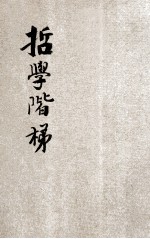 哲學階梯